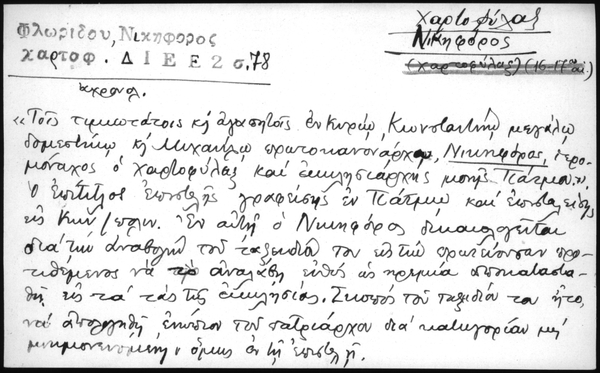 Φλωρίδου, Νικηφόρος
χαρτοφ. ΔΙΕΕ 2 σ.78
Χαρτοφύλαξ
Νικηφόρος
(Χαρτοφύλαξ) (16-17ου αἰ.)
ἀχρονολ.
«Τοῖς τιμιωτάτοις κὴ ἀγαπητοῖς ἐν Κυρίῳ, Κωνσταντίνῳ μεγάλῳ
δομεστίκῳ κὴ Μιχαήλῳ πρωτοκανονάρχῳ, Νικηφόρος, ἱερο-
μόναχος ὁ χαρτοφύλαξ καὶ ἐκκλησιάρχης μονῆς Πάτμου».
Ὁ ἐπίτιτλος ἐπιστολῆς γραφείσης ἐν Πάτμῳ καὶ ἐπισταλείσης
εἰς Κων/πολιν. Ἐν αὐτῇ ὁ Νικηφόρος δικαιολογεῖται
διὰ τὴν ἀναβολὴν τοῦ ταξειδίου του εἰς τὴν πρωτεύουσαν προ-
τιθέμενος νὰ ἀναλάβῃ εὐθὺς ὡς ἠρεμία ἀποκαταστα-
θῇ εἰς τὰ τῆς ἐκκλησίας. Σκοπὸς τοῦ ταξιδίου του ἦτο,
νὰ ἀπολογηθῇ ἐνώπιον τοῦ πατριάρχου διὰ κατηγορίαν μὴ
μνημονευομένην ὅμως ἐν τῇ ἐπιστολῇ.